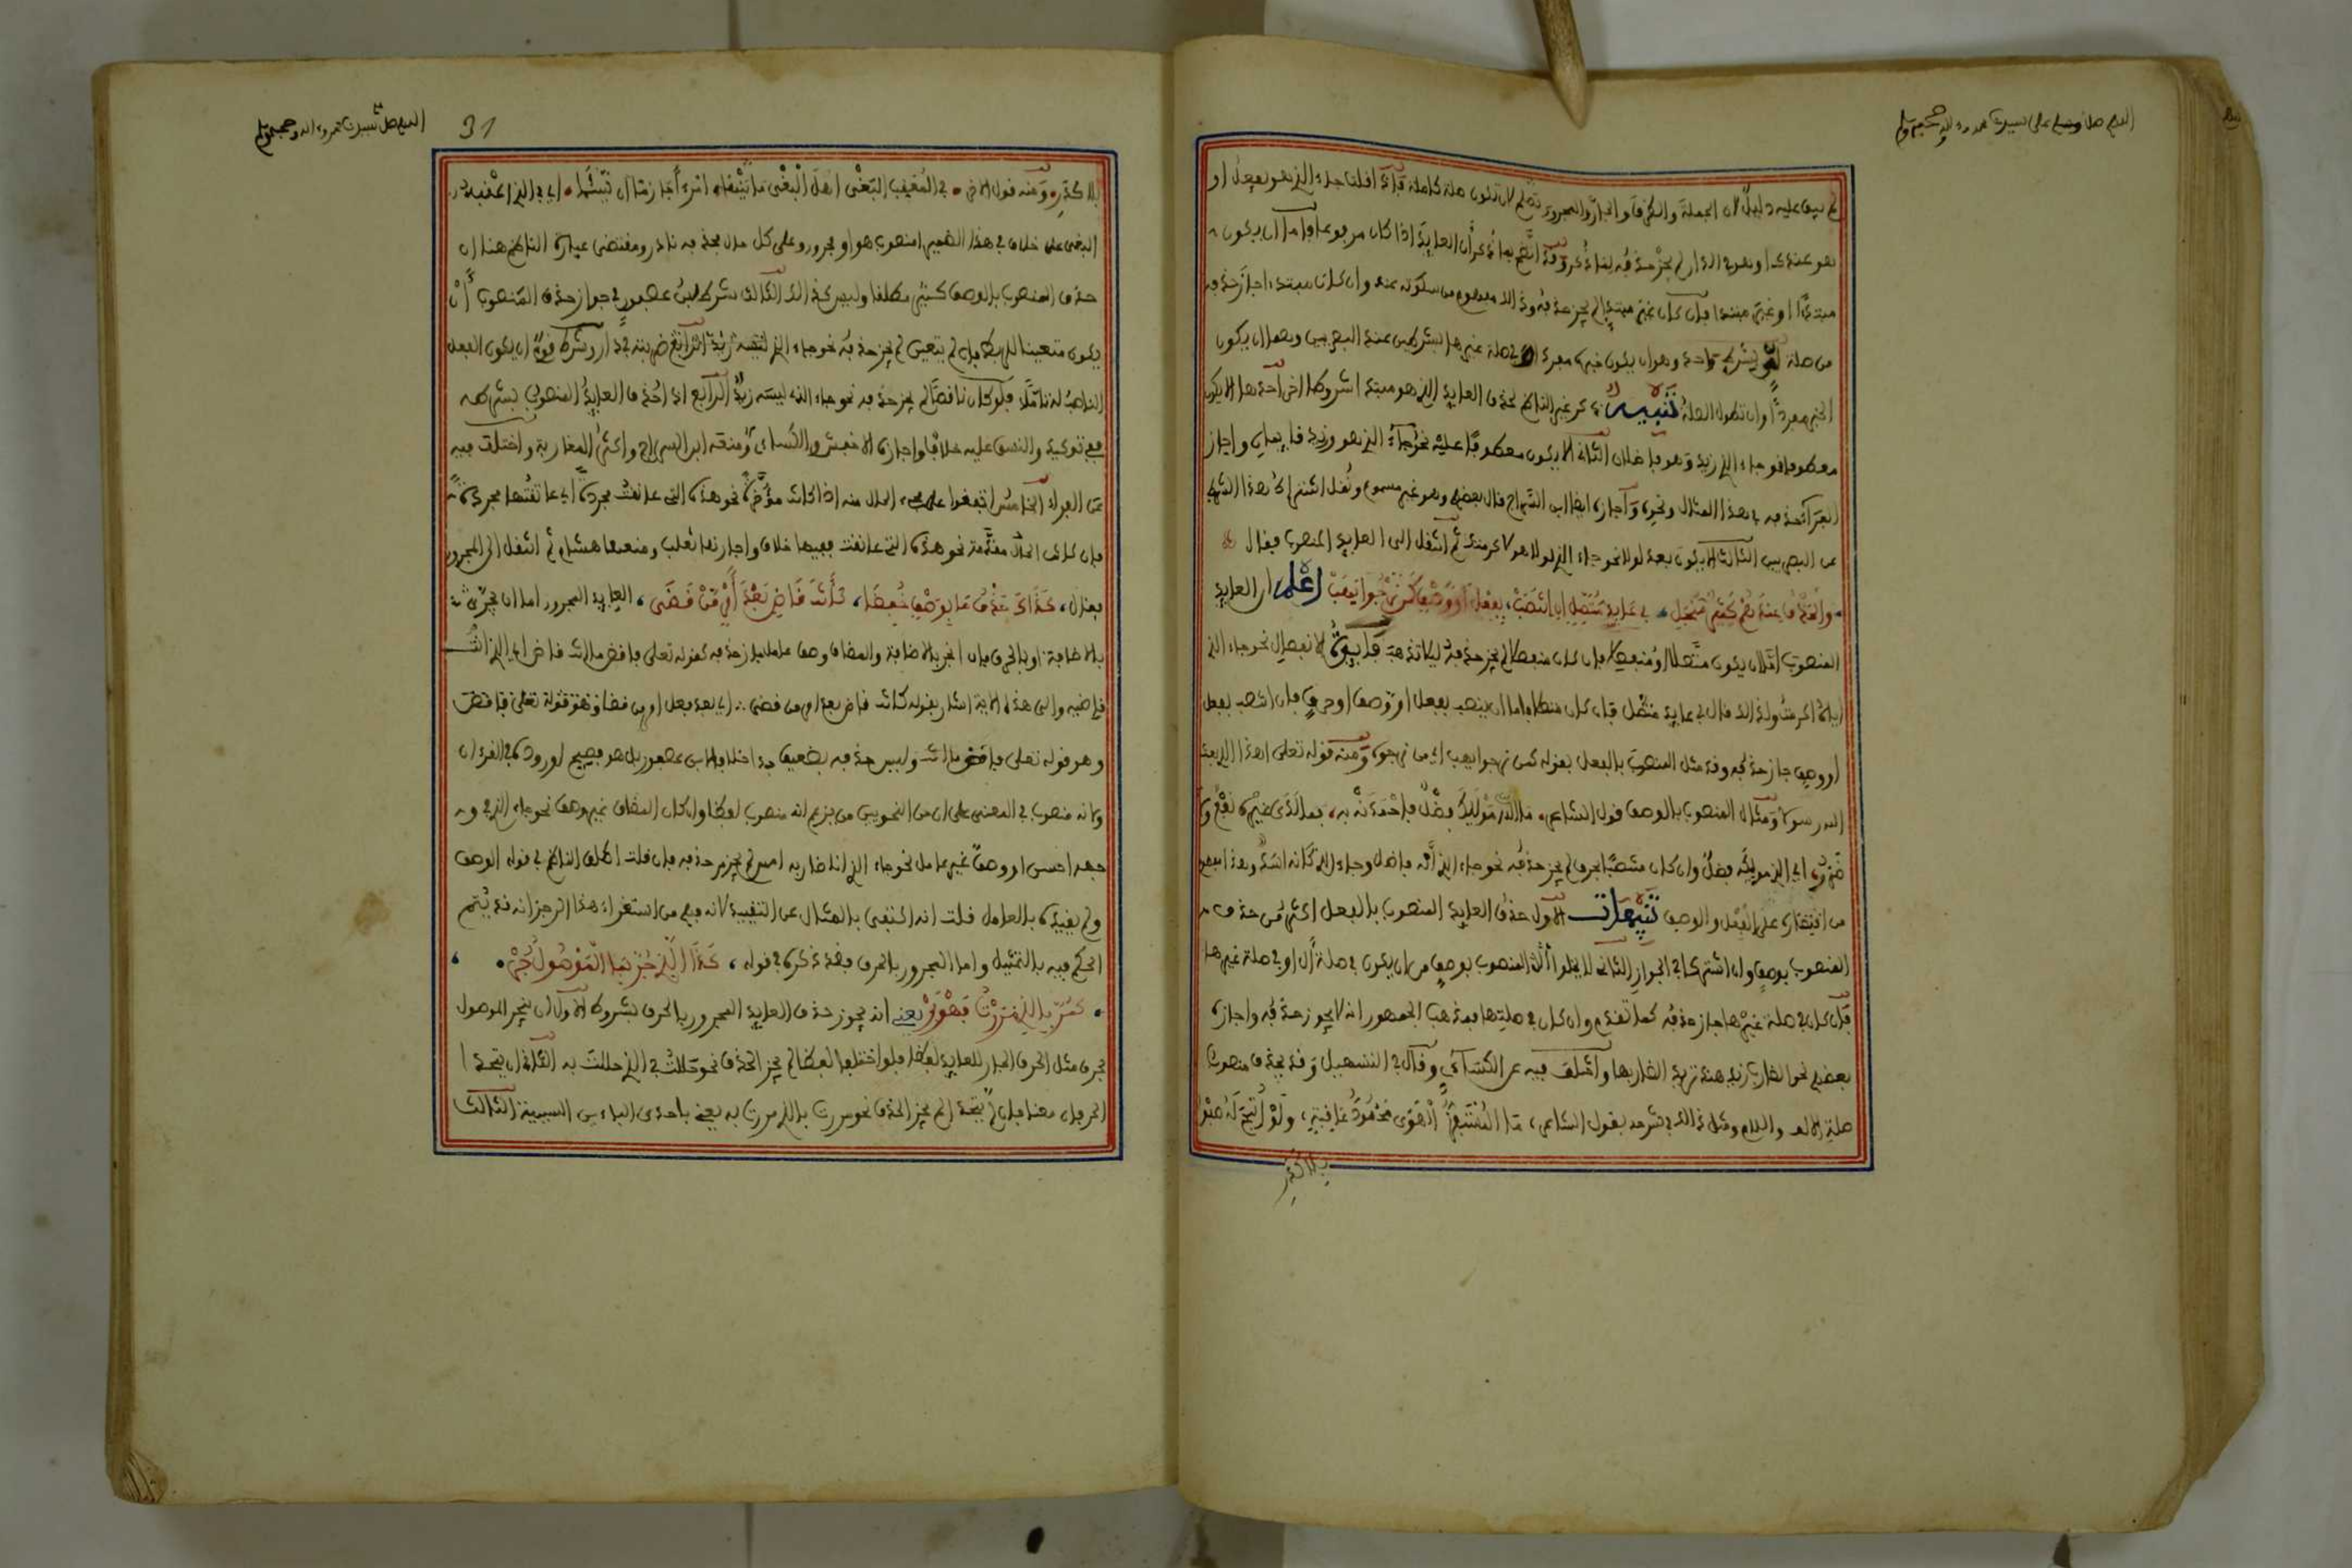 اللهم صل وسلم على سيدنا محمد وءاله وصحبه وسلم
لم يبق عليه دليل لان الجملة والظرف والجار والمجرور تصلح لان تكون صلة كاملة فاذا قلنا جاء الذي هو يفعل او
هو عندك او هو في الدار لم يجز حذفه لما ذكر وقد اتضح بما ذكر ان العايد اذا كان مرفوعا فاما ان يكون
مبتدءا او غير مبتدإ فان كان غير مبتدإ لم يجز حذفه وذلك مفهوم من سكوته عنه وان كان مبتدءا جاز حذفه
من صلة اي بشرط واحد وهو ان يكون خبره مفردا وفي صلة غيرها بشرطين عند البصريين وهما ان يكون
الخبر مفردا وان تطول الصلة تنبيه ذكر غير الناظم لحذف العايد الذي هو مبتدء شروطا اخر احدها الا يكون
معطوفا نحو جاء الذي زيد وهو فاضلان الثاني الا يكون معطوفا عليه نحو جاء الذي هو وزيد قايمان واجاز
الفراء حذفه في هذا المثال ونحوه واجازه ايضا ابن السراج قال بعضهم وهو غير مسموع ونقل اشتراط هذا الشرط
عن البصريين الثالث الا يكون بعد لولا نحو جاء الذي لولا هو لاكرمتك ثم انتقل الى العايد المنصوب فقال
والحذف عندهم كثير منجلي في عايد متصل ان انتصب بفعل او وصف كمن نرجوا يهب اعلم ان العايد
المنصوب اما ان يكون متصلا او منفصلا فان كان منفصلا لم يجز حذفه ليلا تذهب فايدة الانفصال نحو جاء الذي
اياه اكرمت ولذلك قال في عايد متصل فان كان متصلا فاما ان ينصب بفعل او وصف او حرف فان انتصب بفعل
او وصف جاز حذفه وقد مثل المنصوب بالفعل بقوله كمن نرجوا يهب اي من نرجوه ومنه قوله تعلى اهذا الذي بعث
الله رسولا ومثال المنصوب بالوصف قول الشاعر ما الله موليك فضل فاحمدنه به فما لدى غيره نفع ولا
ضرر اي الذي موليكه فضل وان كان منتصبا بحرف لم يجز حذفه نحو جاء الذي انه فاضل وجاء الذي كانه اسد وهذا يفهم
من اقتصاره على الفعل والوصف تنبيهات الاول حذف العايد المنصوب بالفعل اكثر من حذف
المنصوب بوصف وان اشتركا في الجواز الثاني لا يخلوا المنصوب بوصف من ان يكون في صلة ال او في صلة غيرها
فان كان في صلة غيرها جاز حذفه كما تقدم وان كان في صلتها فمذهب الجمهور انه لا يجوز حذفه واجازه
بعضهم نحو الضارب زيد هند تريد الضاربها واختلف فيه عن الكسائي وقال في التسهيل وقد يحذف منصوب
صلة الالف واللام ومثل ذلك في شرحه بقول الشاعر ما المستفز الهوى محمود عاقبة ولو اتيح له صفو
بلا كدر
31
اللهم صل على سيدنا محمد وءاله وصحبه وسلم
بلا كدر ومنه قول الاخر في المعقب البغي اهل البغي ما ينهى امرءا حازما ان يسئما اي في الذي اعقبه
البغي على خلاف في هذا الضمير امنصوب هو او مجرور وعلى كل حال فحذفه نادر ومقتضى عبارة الناظم هنا ان
حذف المنصوب بالوصف كثير مطلقا وليس كذلك الثالث شرط ابن عصفور في جواز حذف المنصوب ان
يكون متعينا للربط فان لم يتعين لم يجز حذفه نحو جاء الذي ضربته في داره وشرط فوق ان يكون الفعل
الناصب له تاما فلو كان ناقصا لم يجز حذفه نحو جاء الذي ليسه زيد الرابع اذا حذف العايد المنصوب بشرطه
ففي توكيده والنسق عليه خلاف واجازه الاخفش والكسائي ومنعه ابن السراج واكثر المغاربة واختلف فيه
عن الفراء الخامس اتفقوا على مجيء الحال منه اذا كانت مؤخرة نحو هذه التي عانقت مجردة اي عانقتها مجردة
فان كانت الحال مقدمة نحو هذه التي عانقت ففيها خلاف واجازها ثعلب ومنعها هشام ثم انتقل الى المجرور
فقال كذاك حذف ما بوصف خفضا كانت قاض بعد امر من قضى العايد المجرور اما ان يجر
بالاضافة او بالحرف فان انجر بالاضافة والمضاف وصف عامل جاز حذفه كقوله تعلى فاقض ما انت قاض اي الذي انت
قاضيه والى هذه الاية اشار بقوله كانت قاض بعد امر من قضى اي بعد فعل امر من قضا وهو قوله تعلى فاقض
وهو قوله تعلى فاقض ما انت وليس حذفه بضعيف جدا خلافا لابن عصفور بل هو فصيح لوروده في القرءان
ولانه منصوب في المعنى على ان من النحويين من يزعم انه منصوب لفظا وان كان المضاف غير وصف نحو جاء الذي
وجهه احسن او وصف غير عامل نحو جاء الذي انا ضاربه امس لم يجز حذفه فان قلت اطلق الناظم في قوله الوصف
ولم يقيده بالعامل قلت انه اكتفى بالمثال عن التقييد لانه فهم من استقراء هذا الرجز انه قد يتمم
الحكم فيه بالتمثيل واما المجرور بالحرف فقد ذكره في قوله كذا الذي جر بما الموصول جر
كمر بالذي مررت فهو بر يعني انه يجوز حذف العايد المجرور بالحرف بشروط الاول ان ينجر الموصول
بحرف مثل الحرف الجار للعايد لفظا فلو اختلفا لفظا لم يجز الحذف نحو حللت في الذي حللت به الثاني ان يتحدا
الحرفان معنا فان لم يتحدا لم يجز الحذف نحو مررت بالذي مررت به يعني باحدى الباءين السببية الثالث